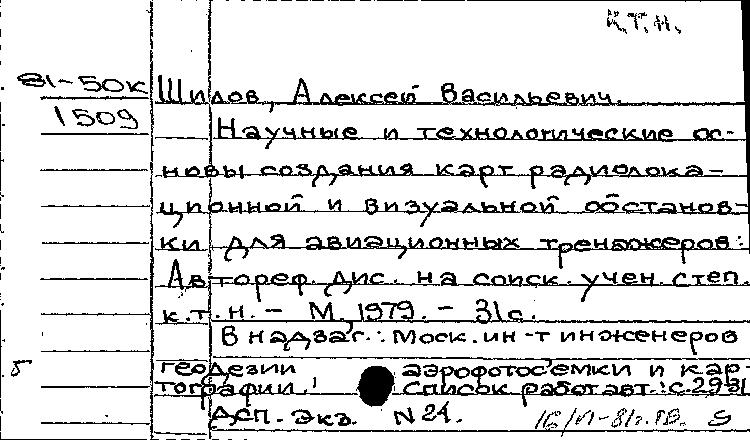 К.Т.Н.
81-50к
1509
Шилов, Алексей Васильевич.
Научные и технологические ос-
новы создания карт радиолока-
ционной и визуальной обстанов-
ки для авиационных тренажеров:
Автореф. дис. на соиск. учен. степ.
к.т.н. - М., 1979. - 31 с.
В надзаг.: Моск. ин-т инженеров
геодезии аэрофотосъемки и кар-
тографии. Список работ авт.: с. 29-31
б
ДСП. Экз. N 24.